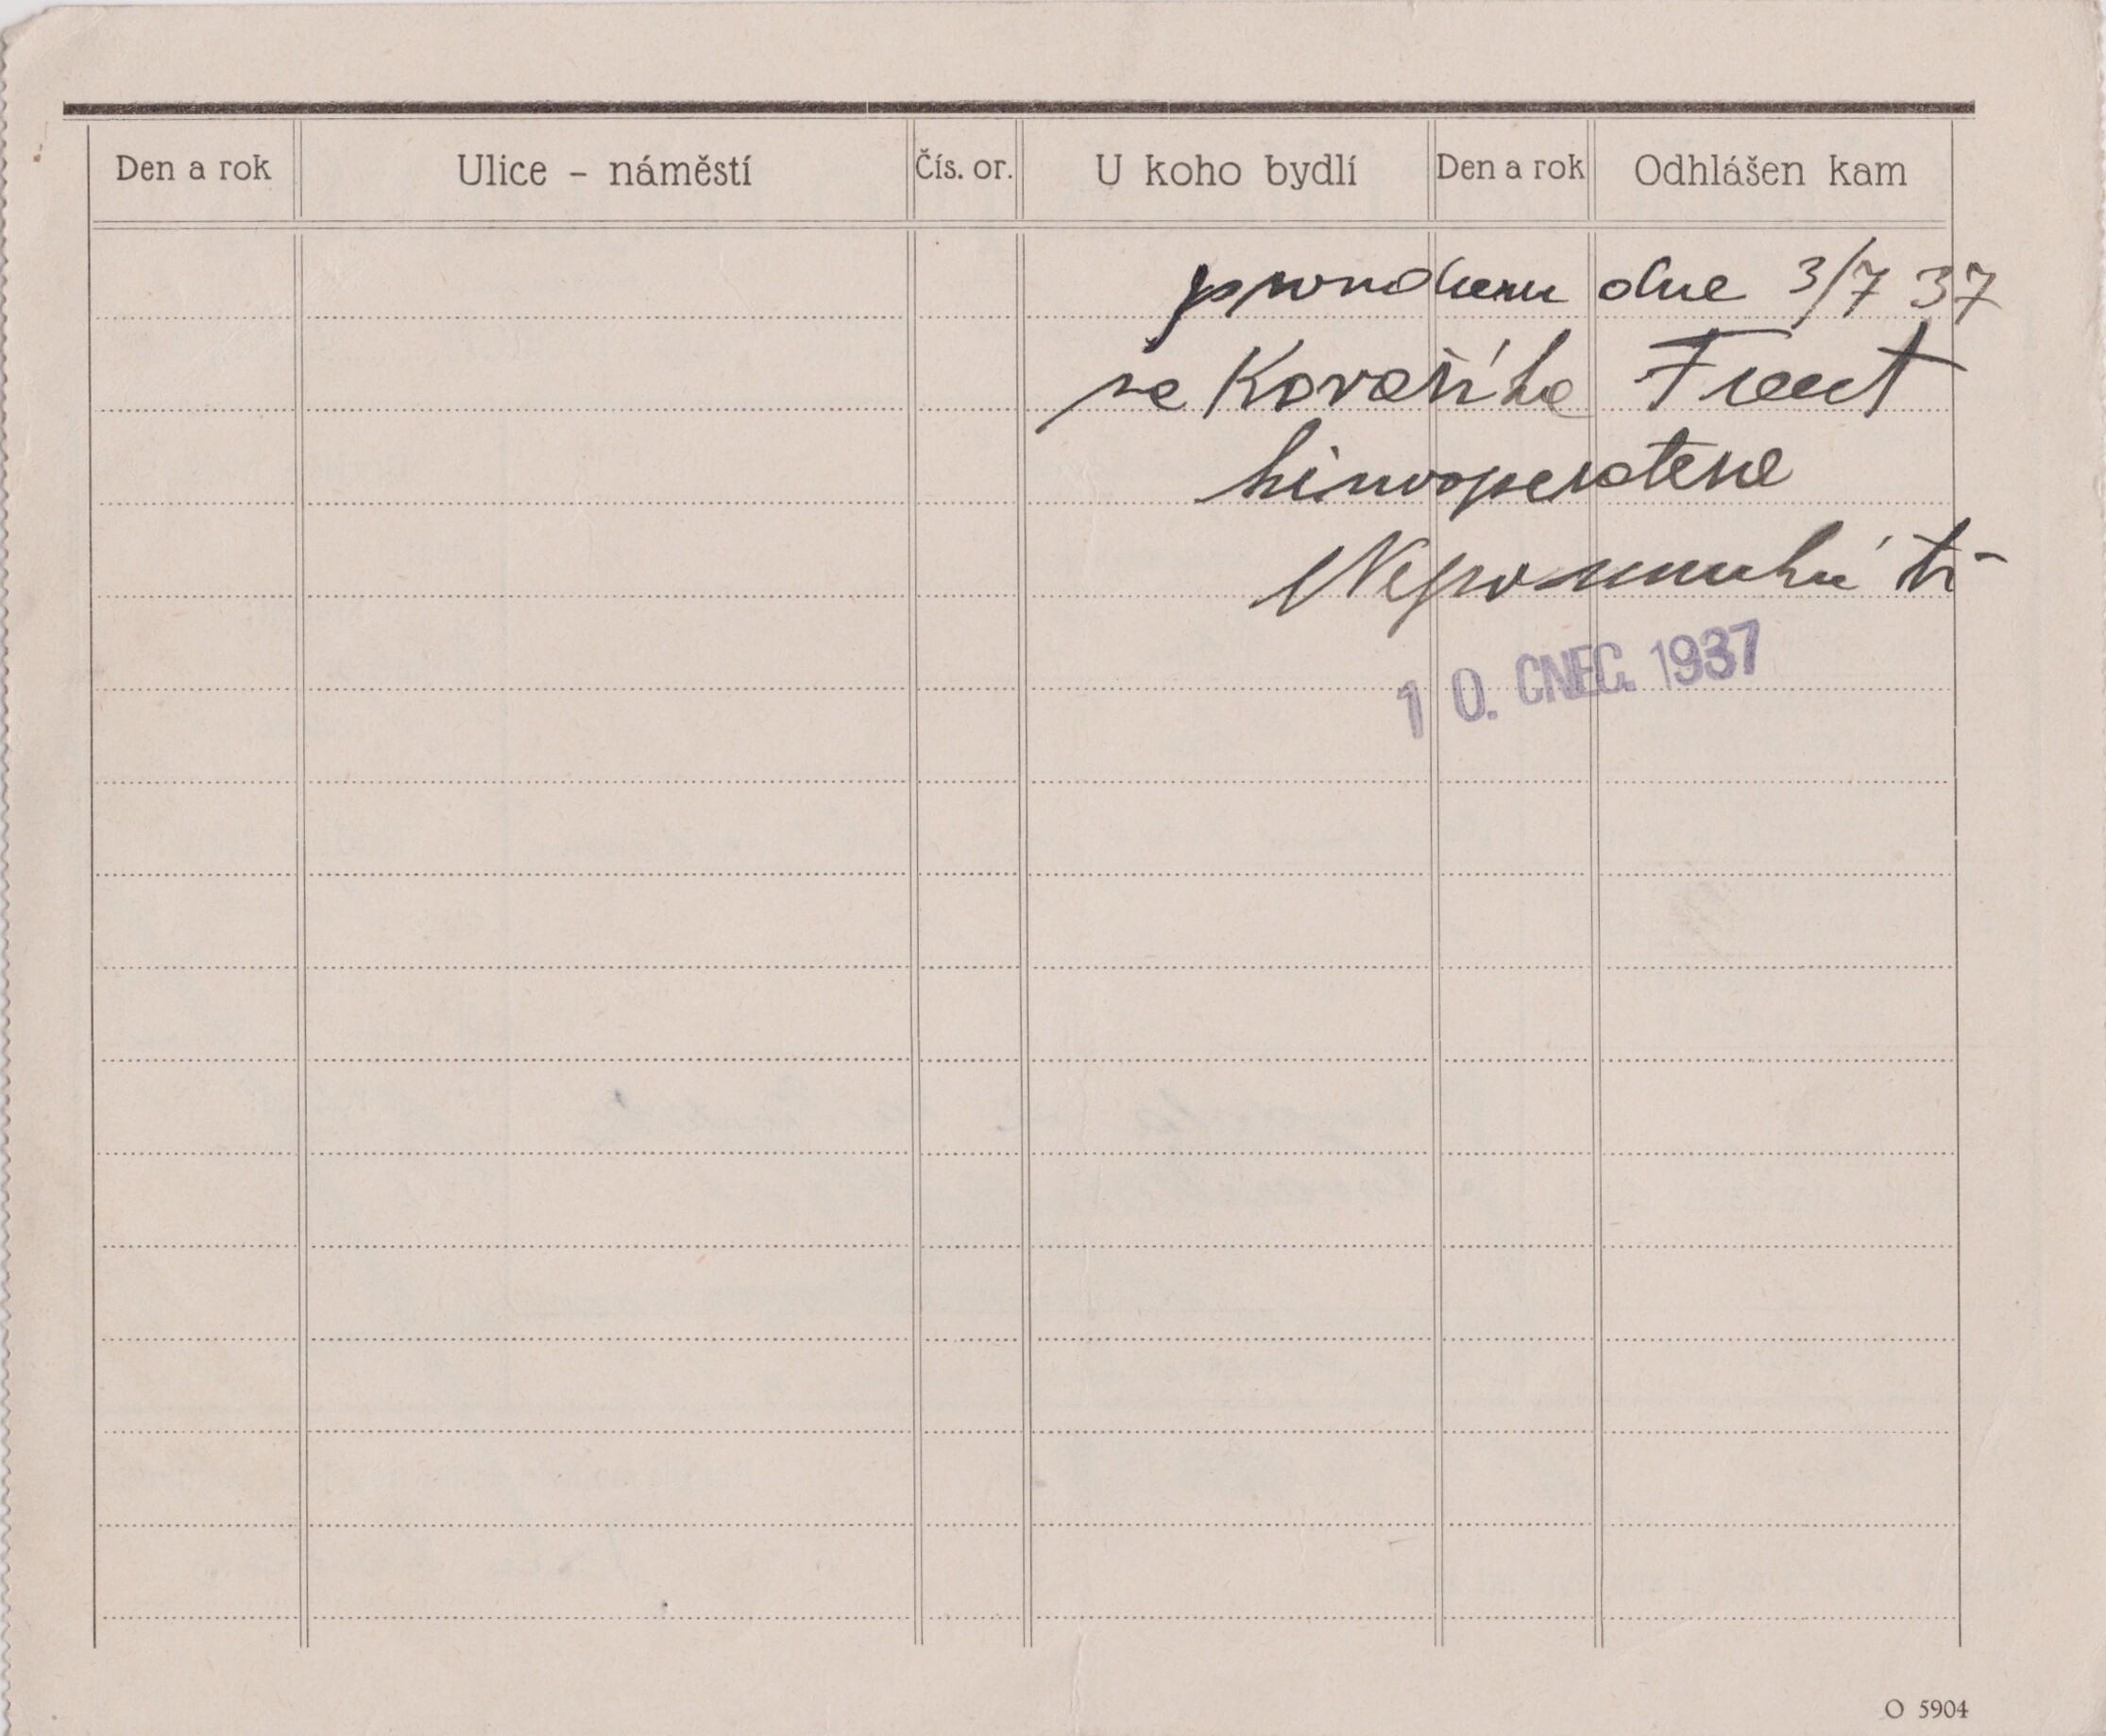 Den a rok Ulice - náměstí Čís. or. U koho bydlí Den a rok Odhlášen kam
provdána dne 3/7 37
za Kovaříka Frant
kinooperatera
Nepomucká tř
10. ČNEC. 1937
O 5904